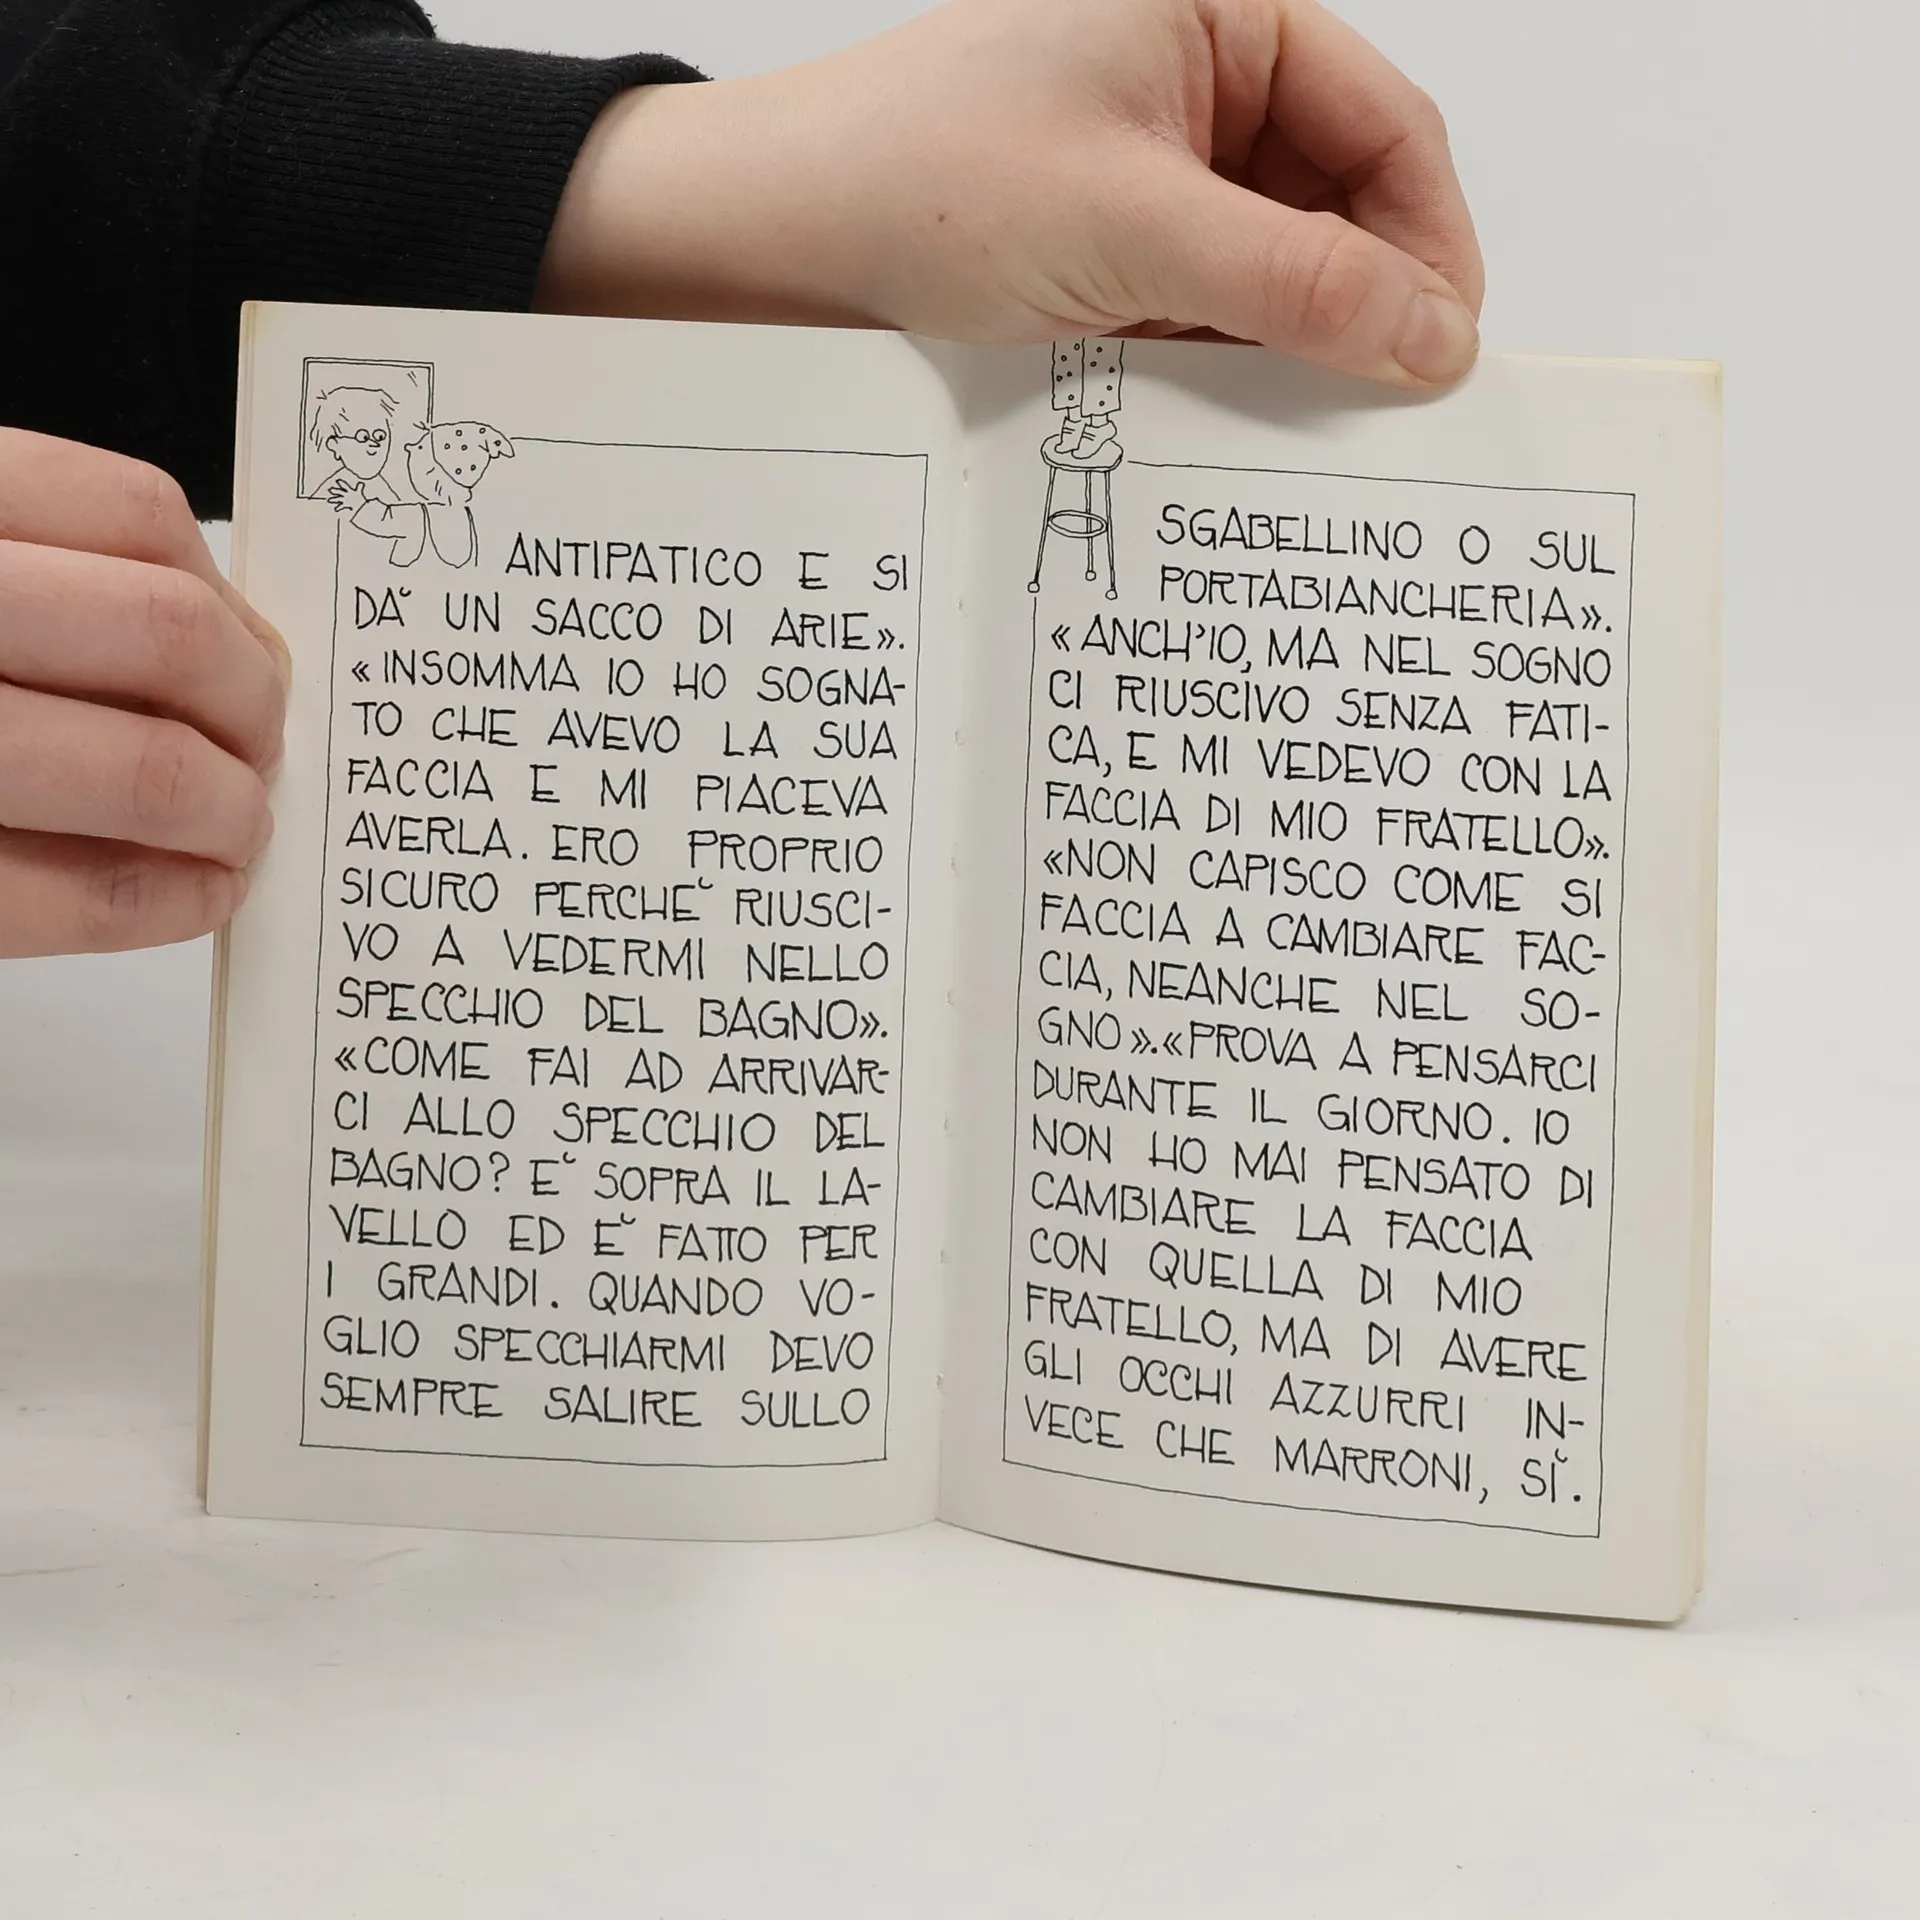 ANTIPATICO E SI
DÀ UN SACCO DI ARIE».
«INSOMMA IO HO SOGNA-
TO CHE AVEVO LA SUA
FACCIA E MI PIACEVA
AVERLA. ERO PROPRIO
SICURO PERCHÈ RIUSCI-
VO A VEDERMI NELLO
SPECCHIO DEL BAGNO».
«COME FAI AD ARRIVAR-
CI ALLO SPECCHIO DEL
BAGNO? È SOPRA IL LA-
VELLO ED È FATTO PER
I GRANDI. QUANDO VO-
GLIO SPECCHIARMI DEVO
SEMPRE SALIRE SULLO
SGABELLINO O SUL
PORTABIANCHERIA».
«ANCH'IO, MA NEL SOGNO
CI RIUSCIVO SENZA FATI-
CA, E MI VEDEVO CON LA
FACCIA DI MIO FRATELLO».
«NON CAPISCO COME SI
FACCIA A CAMBIARE FAC-
CIA, NEANCHE NEL SO-
GNO».«PROVA A PENSARCI
DURANTE IL GIORNO. IO
NON HO MAI PENSATO DI
CAMBIARE LA FACCIA
CON QUELLA DI MIO
FRATELLO, MA DI AVERE
GLI OCCHI AZZURRI IN-
VECE CHE MARRONI, SÌ.